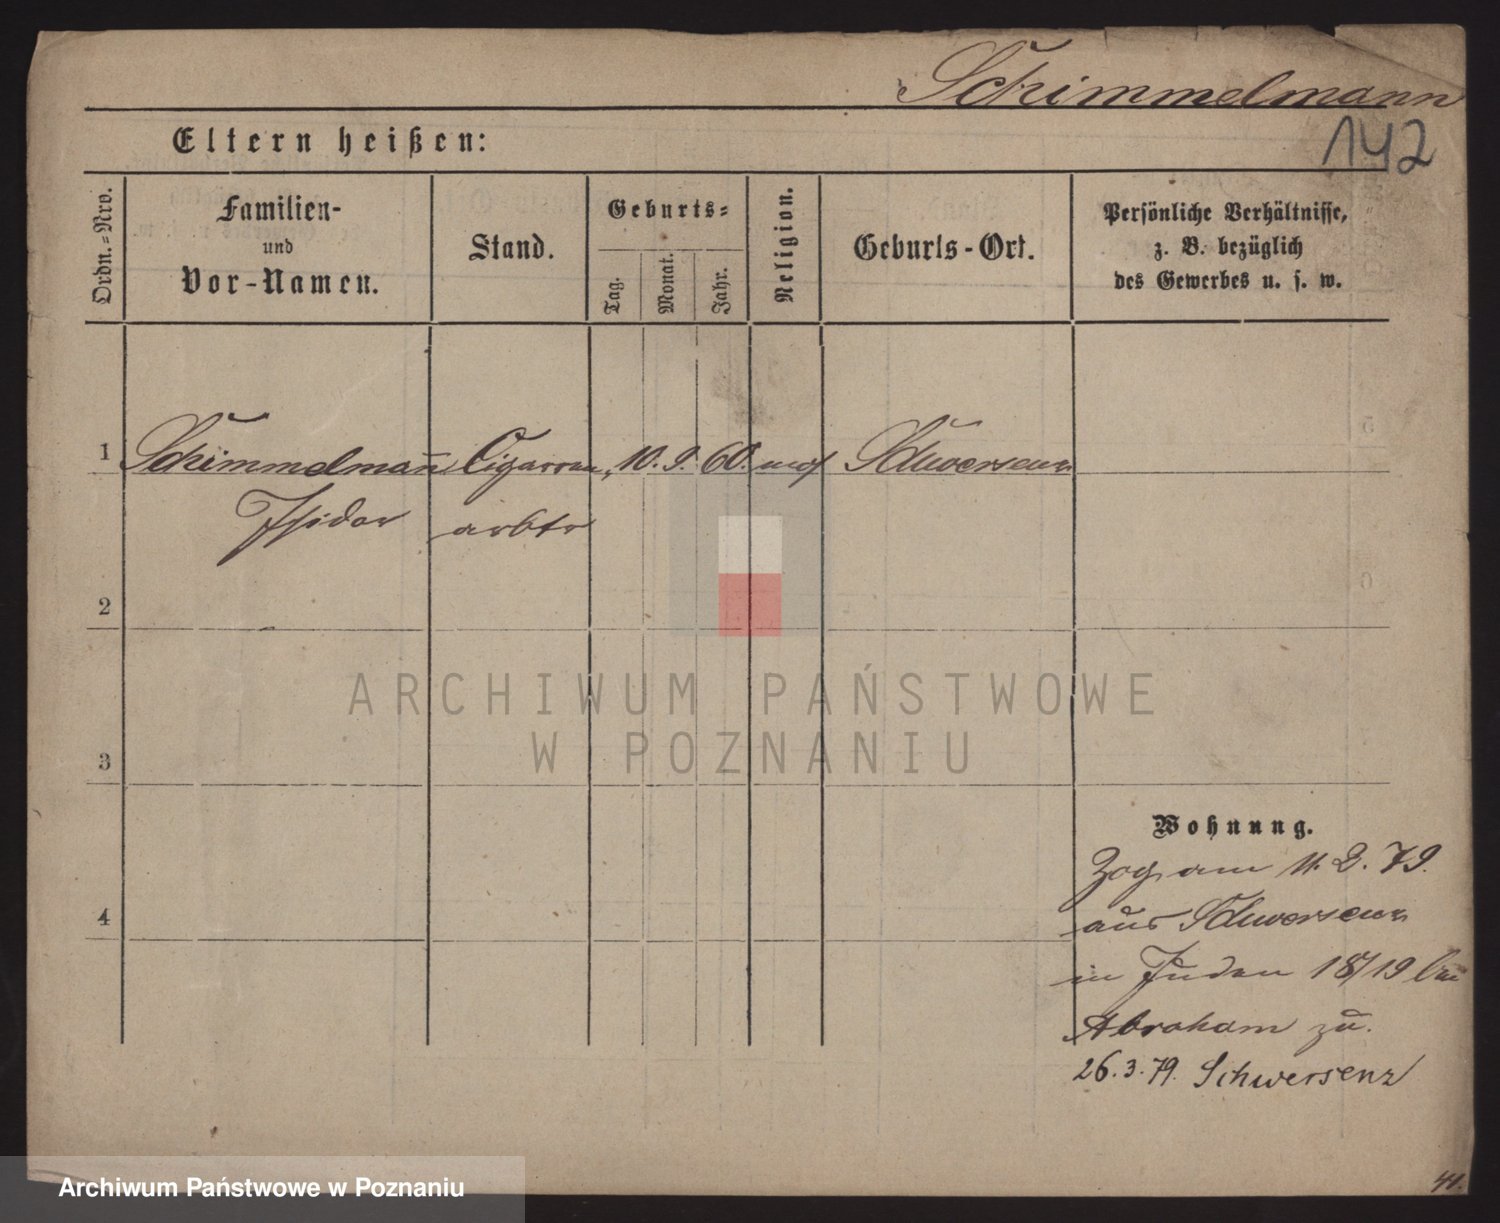 Schimmelmann
142
Eltern heißen:
Ordn.-Nro.
Familien-
und
Vor-Namen.
Stand.
Geburts-
Tag.
Monat.
Jahr.
Religion.
Geburts-Ort.
Persönliche Verhältnisse,
z. B. bezüglich
des Gewerbes u. s. w.
1 Schimmelman̅ Cigarren 10. 9. 60. mos Schwersenz
Isidor arbtr
2
3
4
Wohnung.
Zog am 11. 2. 79.
aus Schwersenz
in Juden 18/19 bei
Abraham zu.
26. 3. 79. Schwersenz
41.
ARCHIWUM PAŃSTWOWE
W POZNANIU
Archiwum Państwowe w Poznaniu